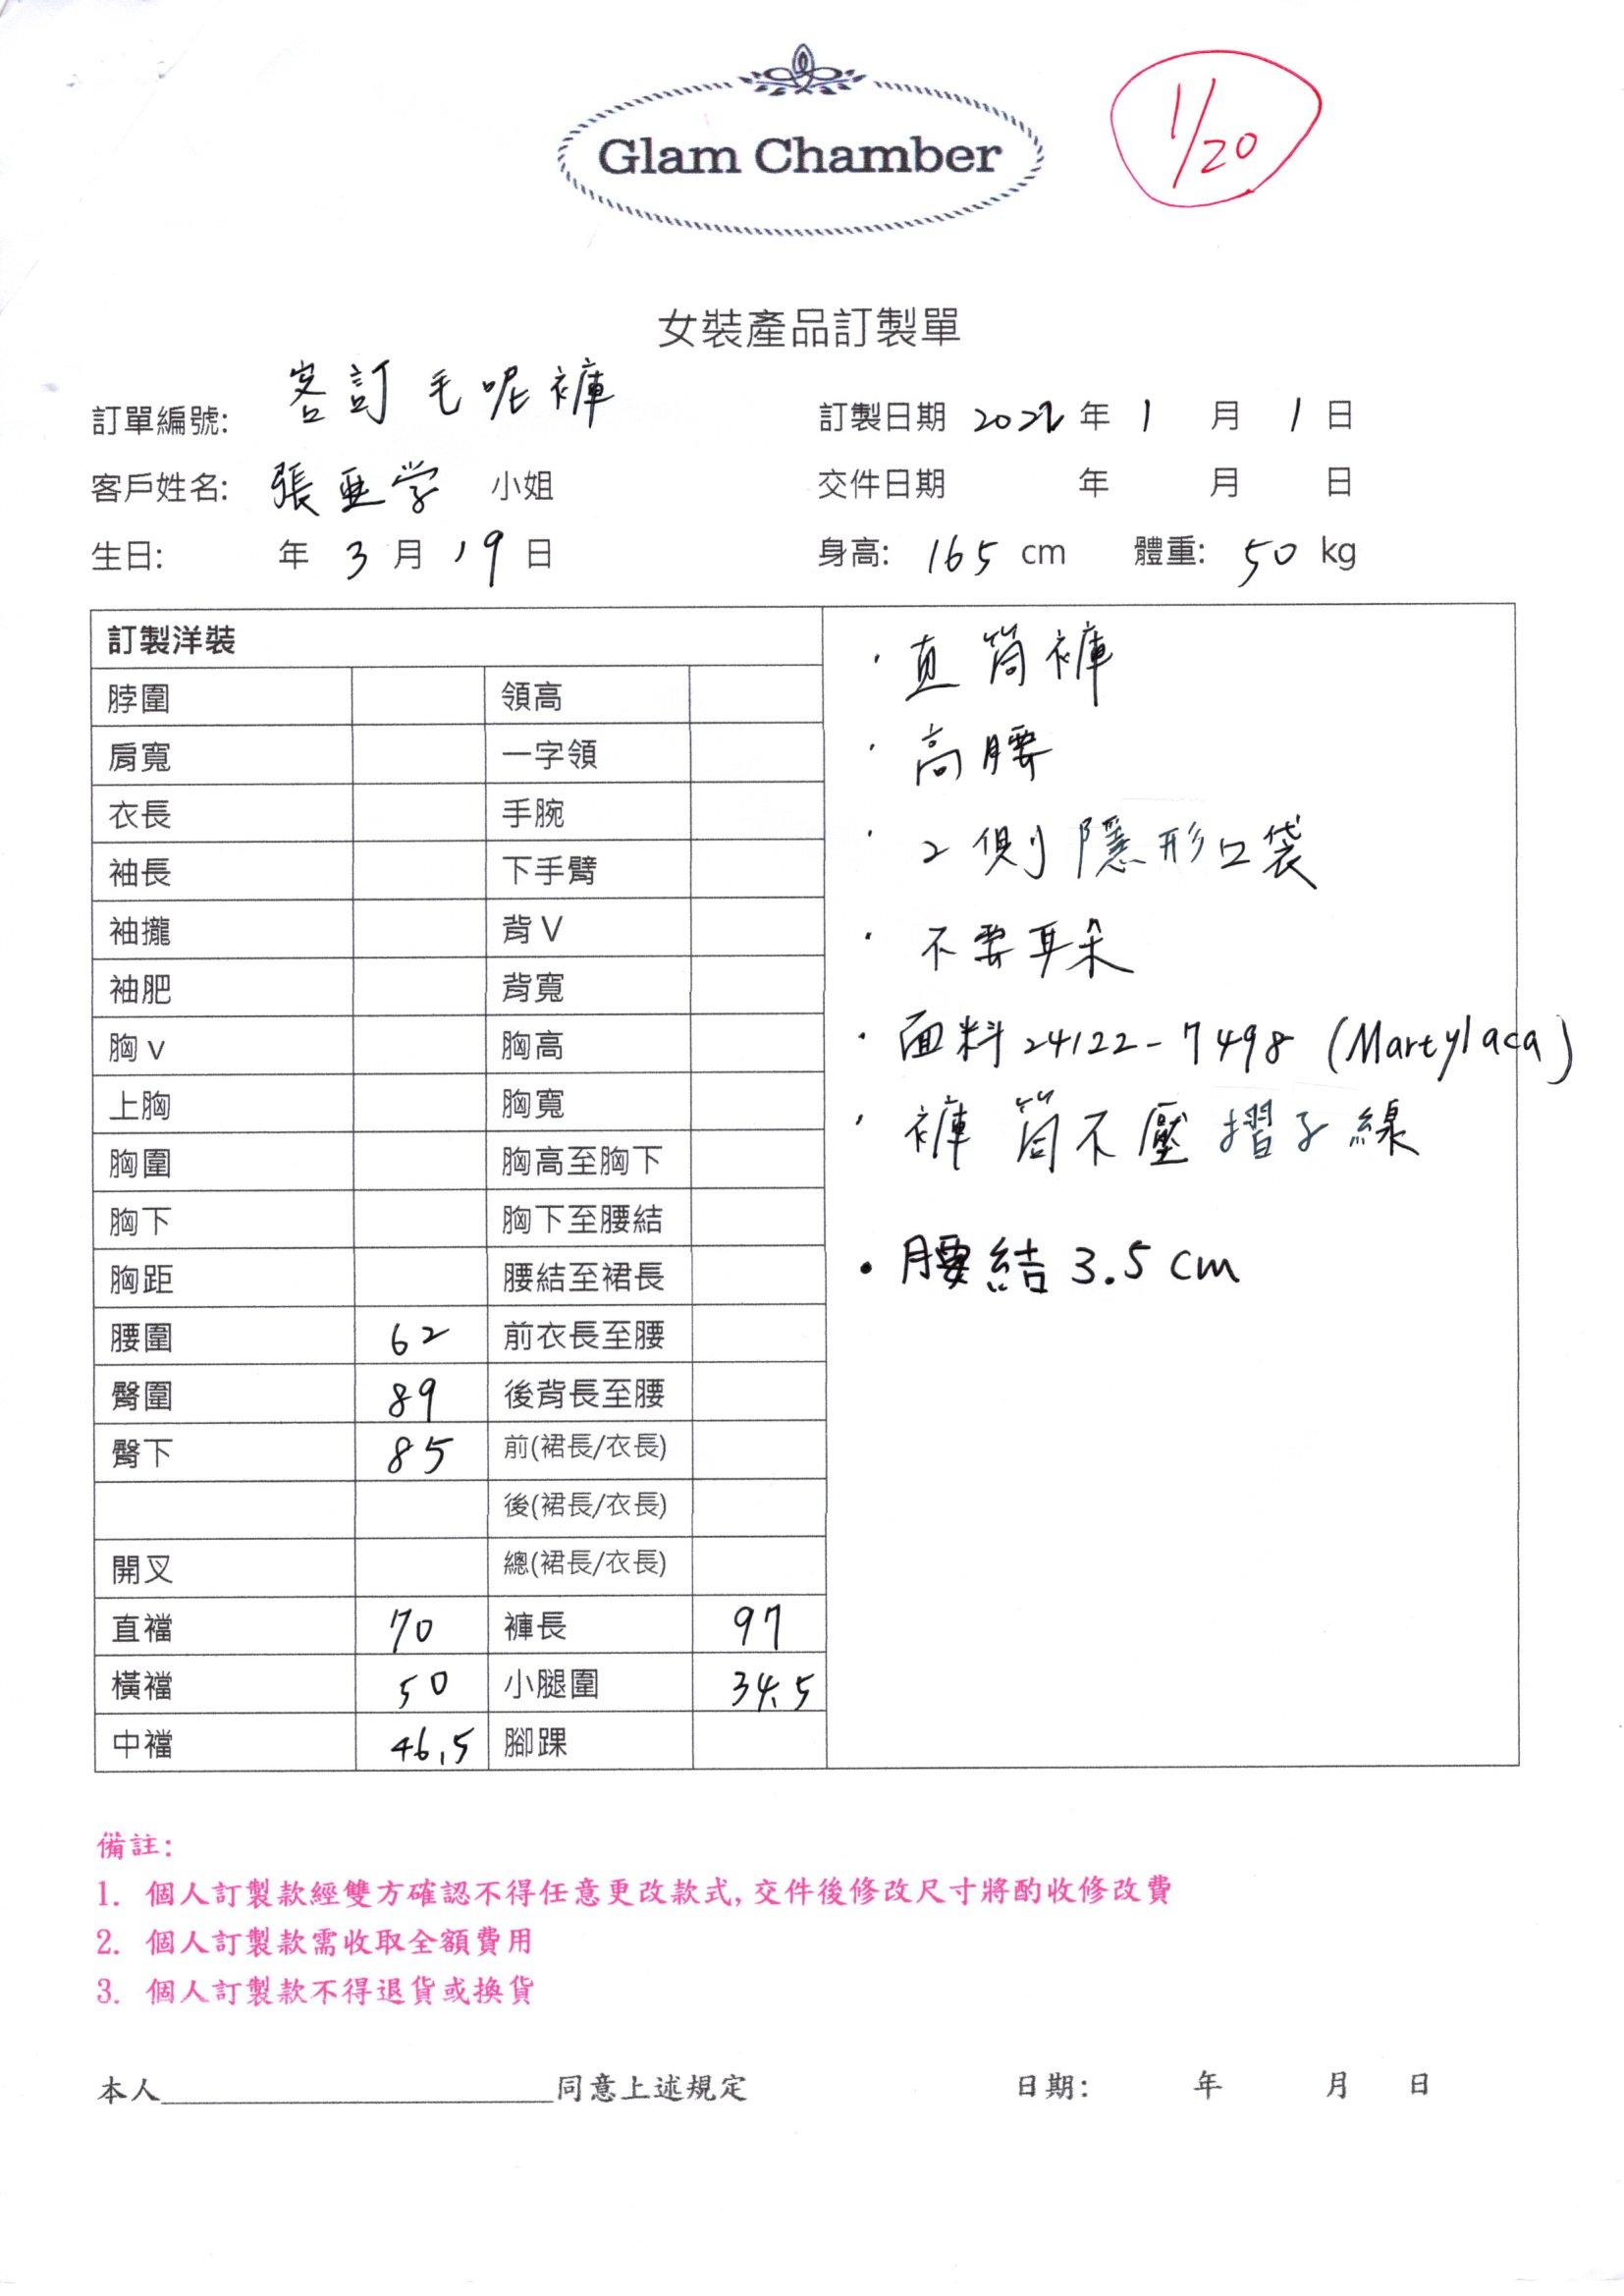 Glam Chamber
1/20
女裝產品訂製單
訂單編號: 客訂毛呢褲 訂製日期 2022 年 1 月 1 日
客戶姓名: 張亜学 小姐 交件日期 年 月 日
生日: 年 3 月 19 日 身高: 165 cm 體重: 50 kg
訂製洋裝
脖圍 領高
肩寬 一字領
衣長 手腕
袖長 下手臂
袖攏 背V
袖肥 背寬
胸v 胸高
上胸 胸寬
胸圍 胸高至胸下
胸下 胸下至腰結
胸距 腰結至裙長
腰圍 62 前衣長至腰
臀圍 89 後背長至腰
臀下 85 前(裙長/衣長)
後(裙長/衣長)
開叉 總(裙長/衣長)
直襠 70 褲長 97
橫襠 50 小腿圍 34.5
中襠 46.5 腳踝
· 直筒褲
· 高腰
· 2側隱形口袋
· 不要耳朵
· 面料24122-7498 (Martylaca)
· 褲筒不壓摺子線
· 腰結 3.5 cm
備註:
1. 個人訂製款經雙方確認不得任意更改款式,交件後修改尺寸將酌收修改費
2. 個人訂製款需收取全額費用
3. 個人訂製款不得退貨或換貨
本人________________同意上述規定 日期: 年 月 日